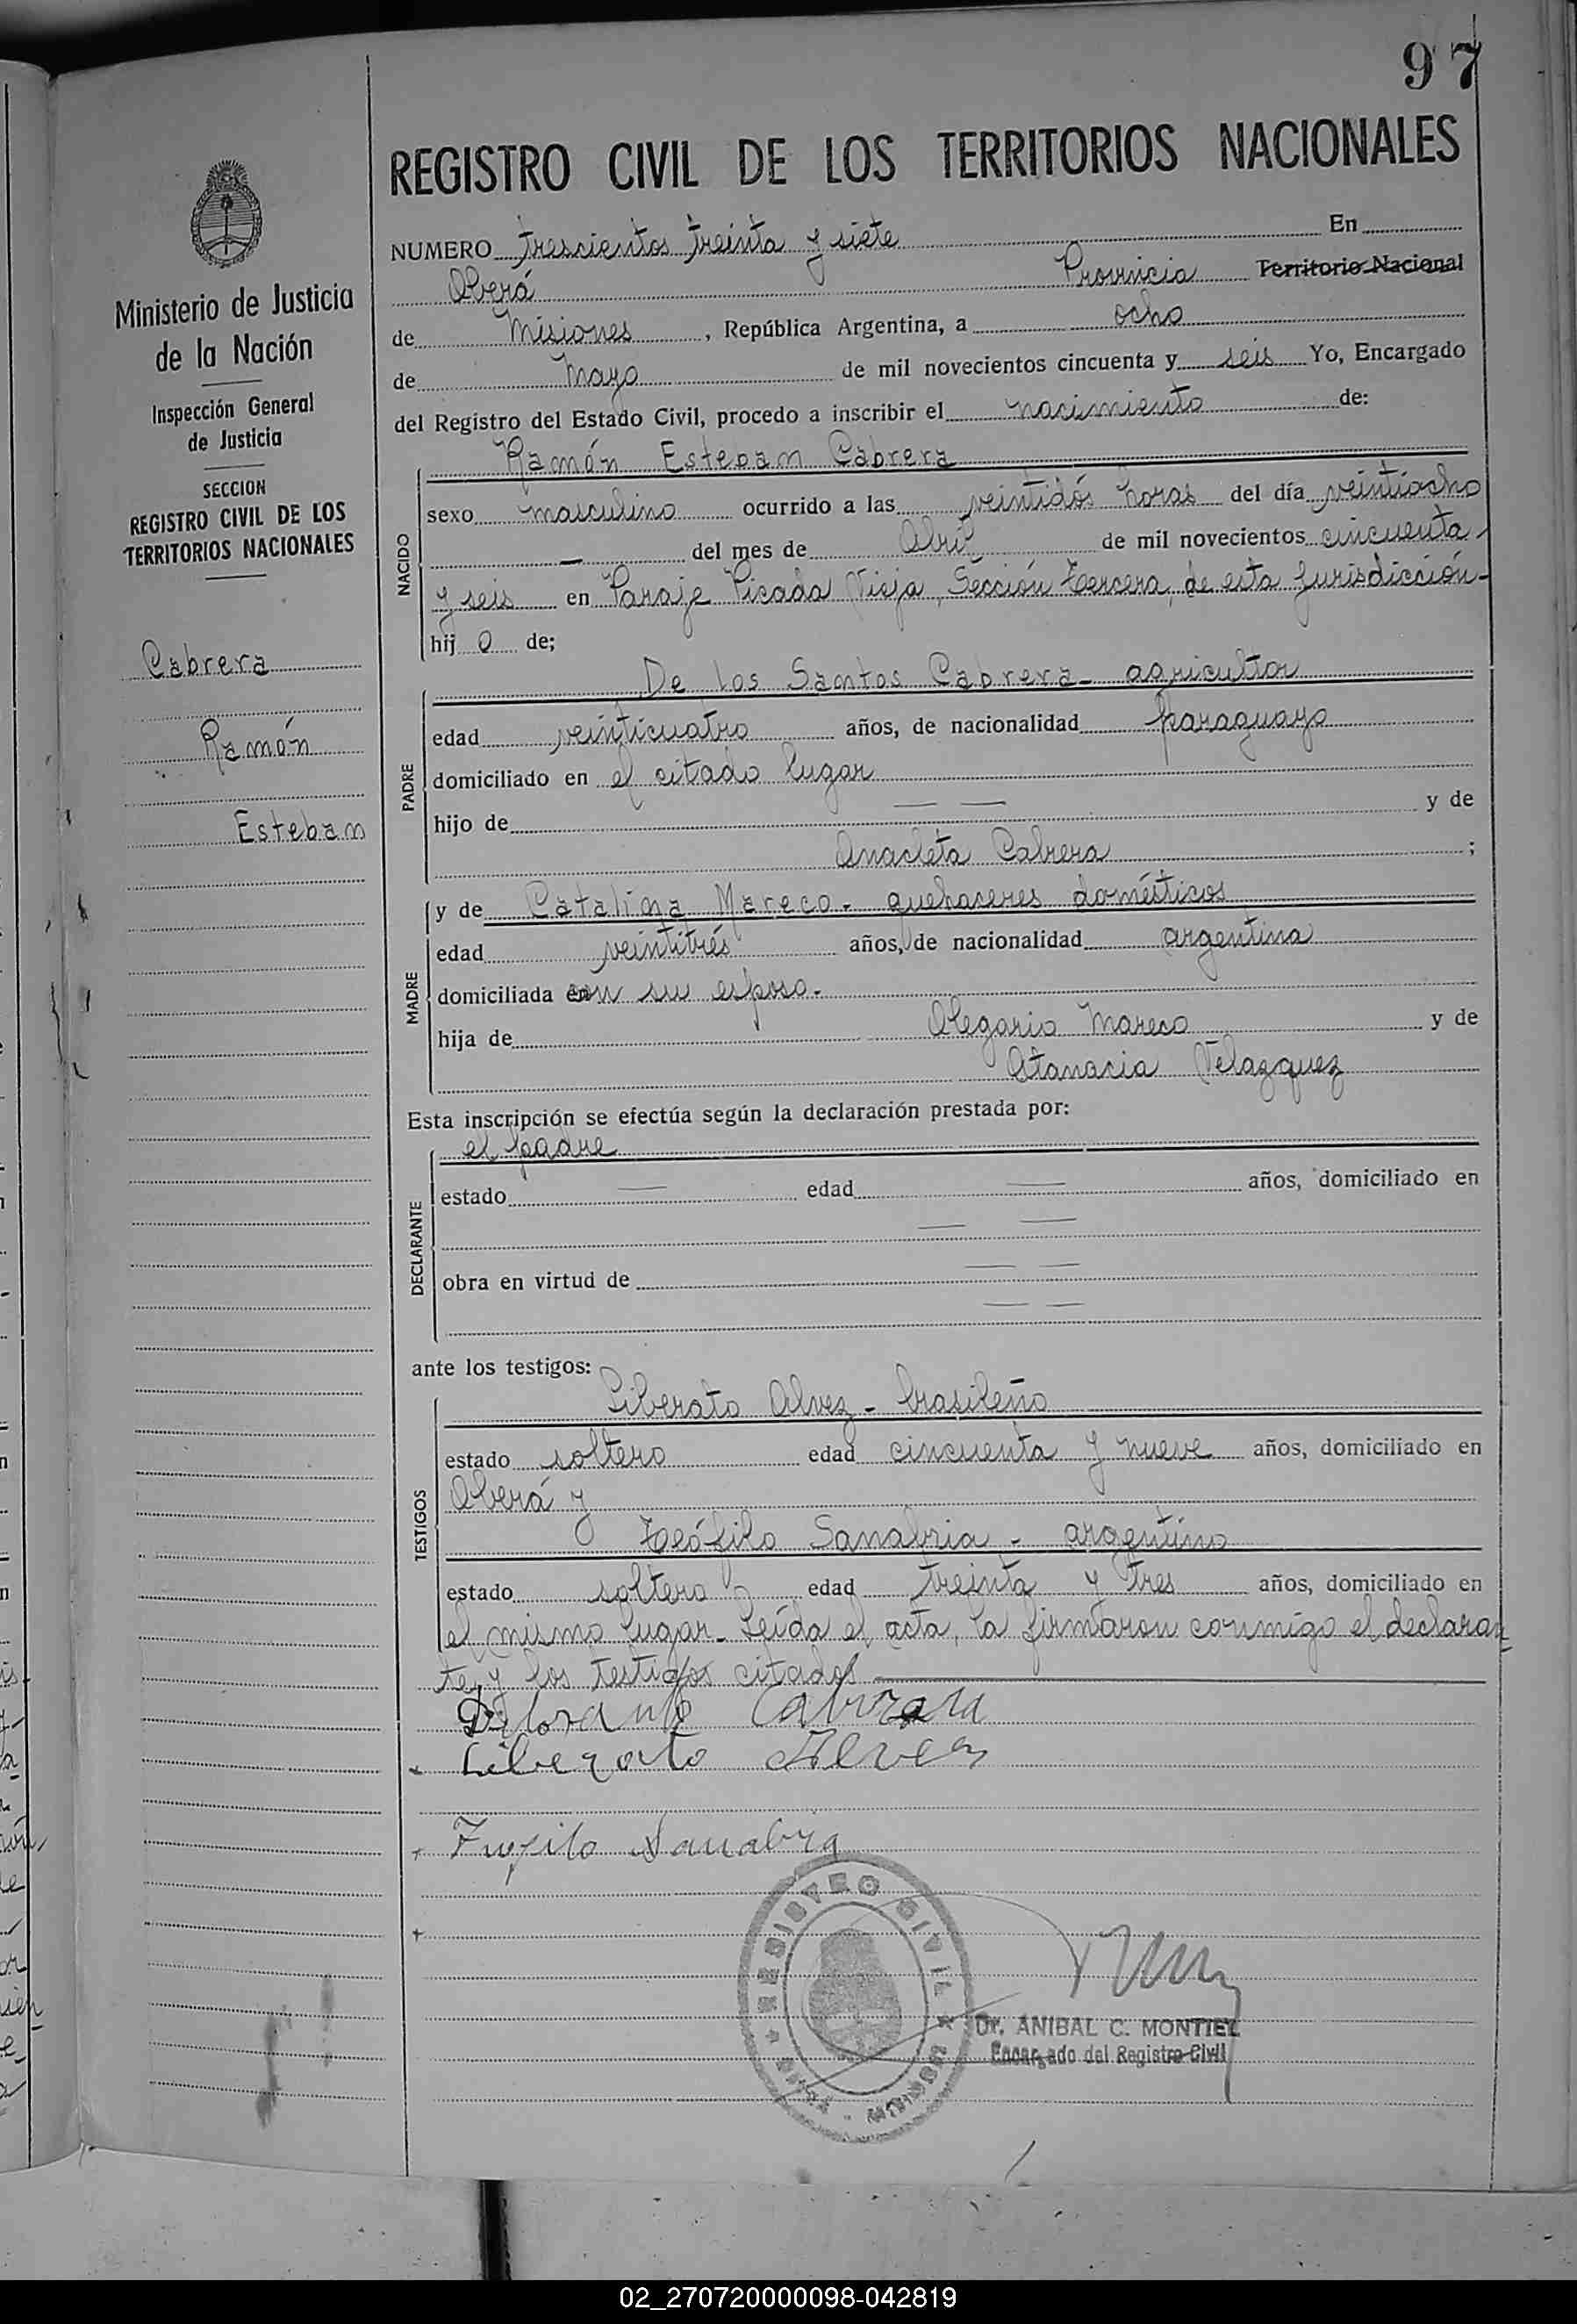 97
REGISTRO CIVIL DE LOS TERRITORIOS NACIONALES
Ministerio de Justicia
de la Nación
Inspección General
de Justicia
SECCION
REGISTRO CIVIL DE LOS
TERRITORIOS NACIONALES
Cabrera
Ramón
Esteban
NUMERO trescientos treinta y siete En
Oberá Provincia Territorio Nacional
de Misiones, República Argentina, a ocho
de Mayo de mil novecientos cincuenta y seis Yo, Encargado
del Registro del Estado Civil, procedo a inscribir el nacimiento de:
Ramón Esteban Cabrera
NACIDO
sexo masculino ocurrido a las veintidós horas del día veintiocho
— del mes de Abril de mil novecientos cincuenta
y seis en Paraje Picada Vieja, Sección tercera, de esta jurisdicción-
hijo de;
PADRE
De los Santos Cabrera - agricultor
edad veinticuatro años, de nacionalidad paraguayo
domiciliado en el citado lugar
hijo de — — y de
Anacleta Cabrera ;
MADRE
y de Catalina Mareco - quehaceres domésticos
edad veintitrés años, de nacionalidad argentina
domiciliada con su esposo.
hija de Olegario Mareco y de
Atanacia Velazquez
Esta inscripción se efectúa según la declaración prestada por:
DECLARANTE
el padre
estado — edad — años, domiciliado en
— —
obra en virtud de — —
— —
ante los testigos:
TESTIGOS
Liberato Alvez - brasileño
estado soltero edad cincuenta y nueve años, domiciliado en
Oberá y
Teófilo Sanabria - argentino
estado soltero edad treinta y tres años, domiciliado en
el mismo lugar - Leída el acta, la firmaron conmigo el declaran
te y los testigos citados
Cabrera
Liberato Alvez
Sanabria
REGISTRO CIVIL
MISIONES
Dr. ANIBAL C. MONTIEL
Encargado del Registro Civil
02_270720000098-042819